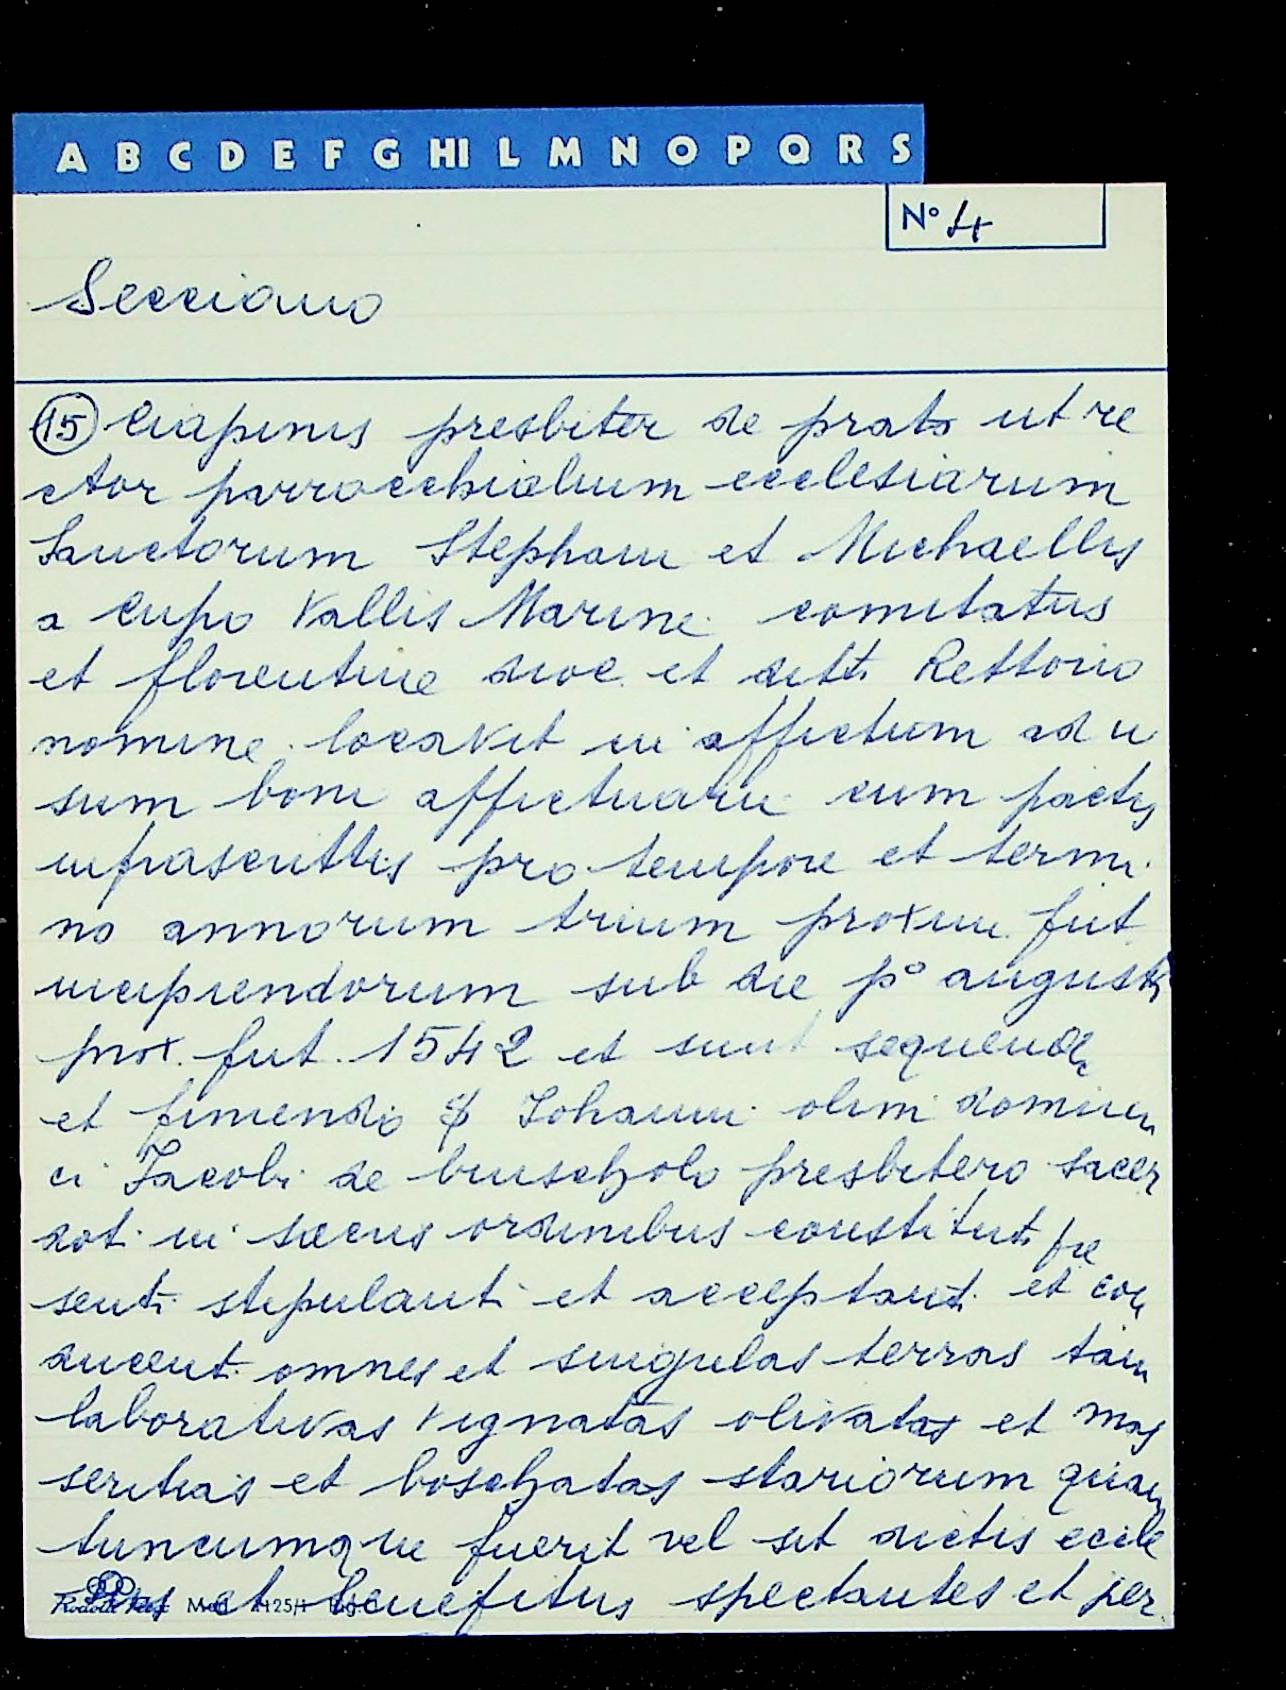 A B C D E F G HI L M N O P Q R S
N° 4
Secciano
15 Ciapinis presbiter de prato ut re
ctor parrocchialium ecclesiarum
Sanctorum Stephani et Michaellis
a Cupo Vallis Marine comitatus
et florentine dioc. et ditti Rettorio
nomine locavit in affictum ad u
sum boni affictuarii cum pactis
infrascrittis pro tempore et termi
no annorum trium proxim. fut
incipiendorum sub die p° augusti
prox. fut. 1542 et sunt sequend
et finiendo Iohanni olim domini
ci Iacobi de buscholo presbitero sacer
dot. in sacris ordinibus constituti pre
senti stipulanti et acceptanti et con
ducent. omnes et singulas terras tam
laborativas vignatas olivatas et mas
seritias et boschatas stariorum quan
tuncumque fuerit vel sit dictis eccle
siis et benefitiis spectantes et per